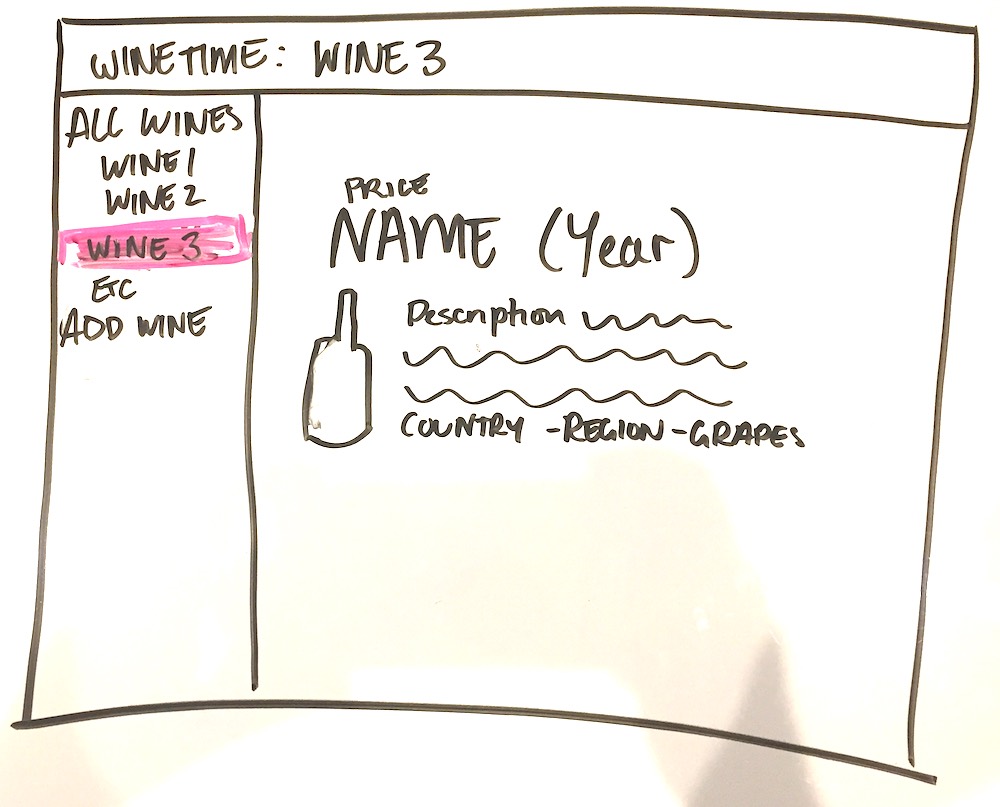 WINETIME: WINE 3
ALL WINES
WINE 1
WINE 2
WINE 3
ETC
ADD WINE
PRICE
NAME (Year)
Description
COUNTRY - REGION - GRAPES